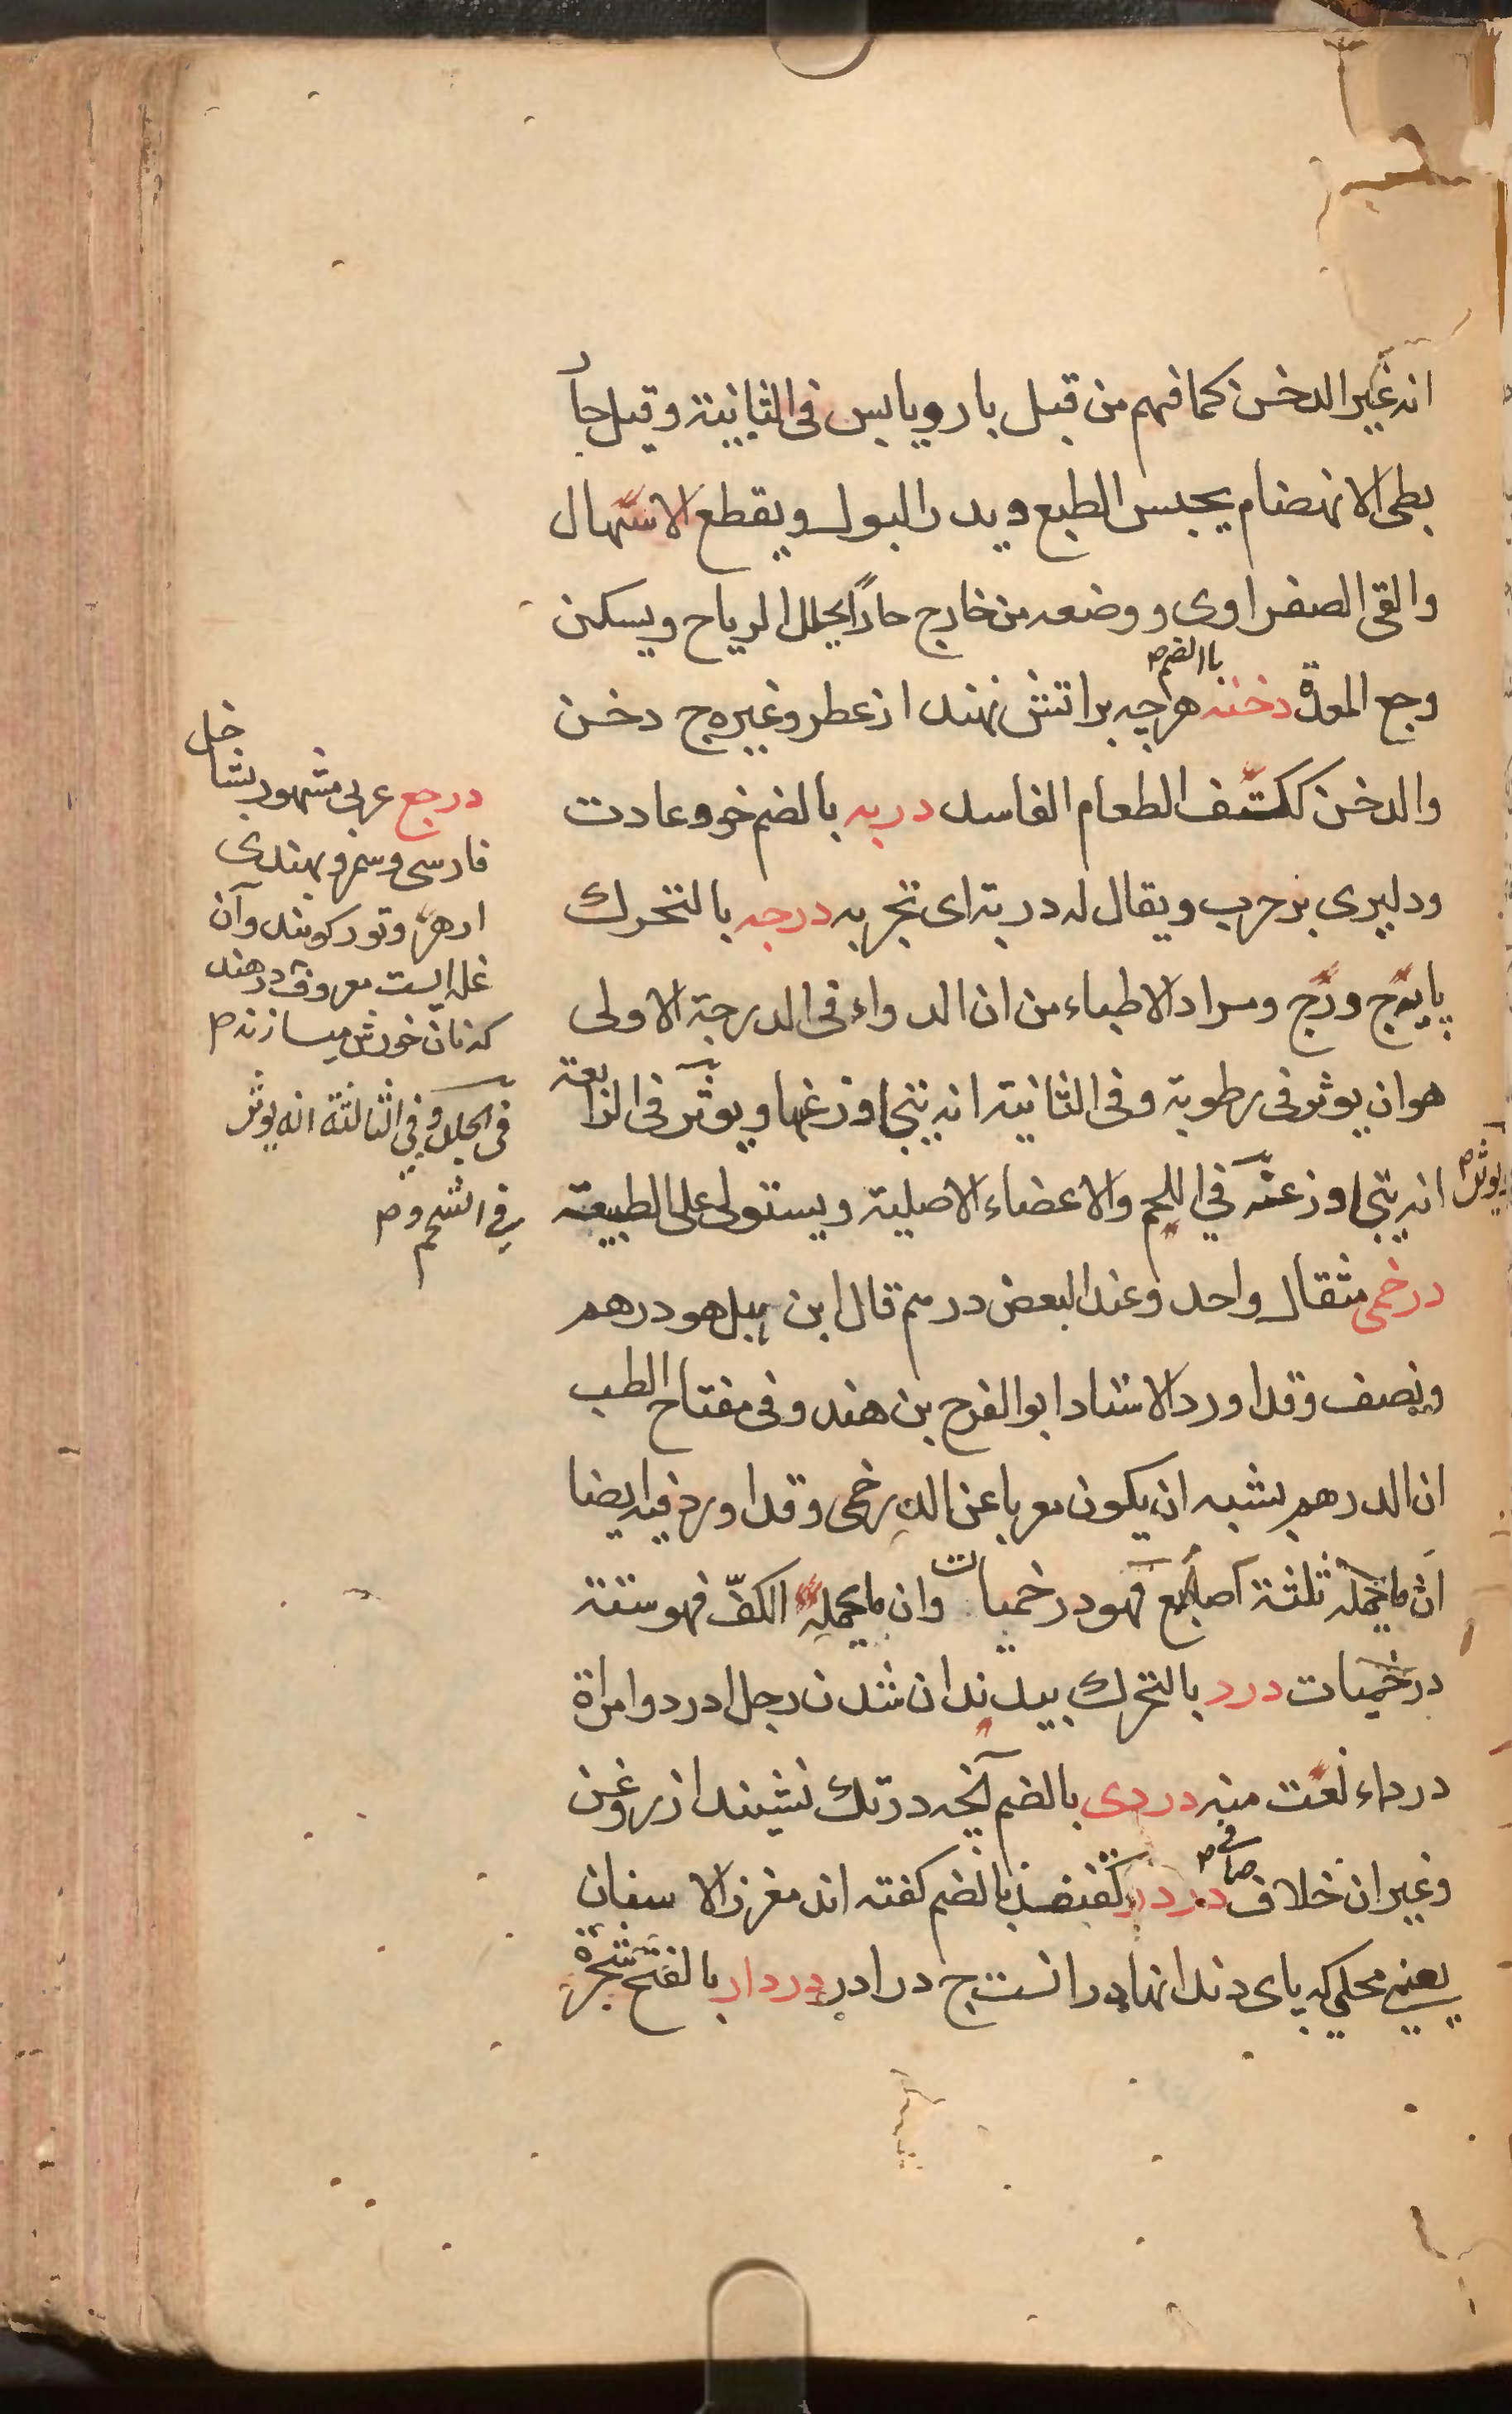 انه غير الدخن كما فهم من قبل بارد يابس فى الثانية وقيل حار
بطى الانهضام يحبس الطبع ويدر البول ويقطع الاسهال
والقى الصفراوى ووضعه من خارج حارًا يحلل الرياح ويسكن
باالضم ص
وجع المعدة دخنه هرچه براتش نهند از عطر وغيره ج دخن
والدخن ككتف الطعام الفاسد دربه بالضم خو وعادت
ودليرى بر حرب ويقال له دربة اى تجربه درجه بالتحرك
پايه ج درج ومراد الاطباء من ان الدواء فى الدرجة الاولى
هو ان يوثر فى رطوبة وفى الثانية انه يتجاوز غنها ويوثر فى الرابعة
يوثر ص
انه يتجاوز عنه في اللحم والاعضاء الاصلية ويستولى على الطبيعة
درخمى مثقال واحد وعند البعض درسم قال ابن هبل هو درهم
ونصف وقد اورد الاستاد ابو الفرج بن هندو فى مفتاح الطب
ان الدرهم يشبه ان يكون معربا عن الدرخمى وقد اورد فيه ايضا
ان ما يحمله ثلثة اصابع فهو درخميات وان ما يحمله الكفّ فهو ستة
درخميات درد بالتحرك بيدندان شدن رجل ادرد وامراة
درداء نعت منه دردى بالضم آنچه درتك نشيند از روغن
صافى ص
وغيران خلاف دردر كقنفذ بالضم كفته اند مغرز الاسنان
يعنى محلى كه پاى دندانها درانست ج درادر دردار بالفتح شجرة
درجع عربى مشهور بشاخل
فارسى وسمرو بهندى
ارهر وتور كويند وآن
غله ايست معروف درهند
كه نان خورش ميسازند ص
فى الجلد وفي الثالثة انه يوثر
في الشحم و ص